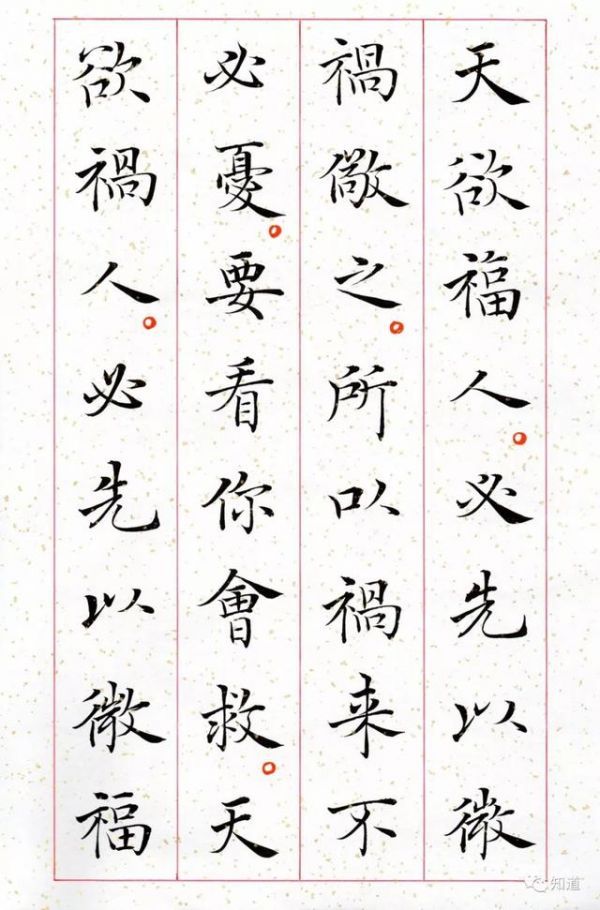 天欲福人。必先以微
禍儆之。所以禍来不
必憂。要看你會救。天
欲禍人。必先以微福
知道